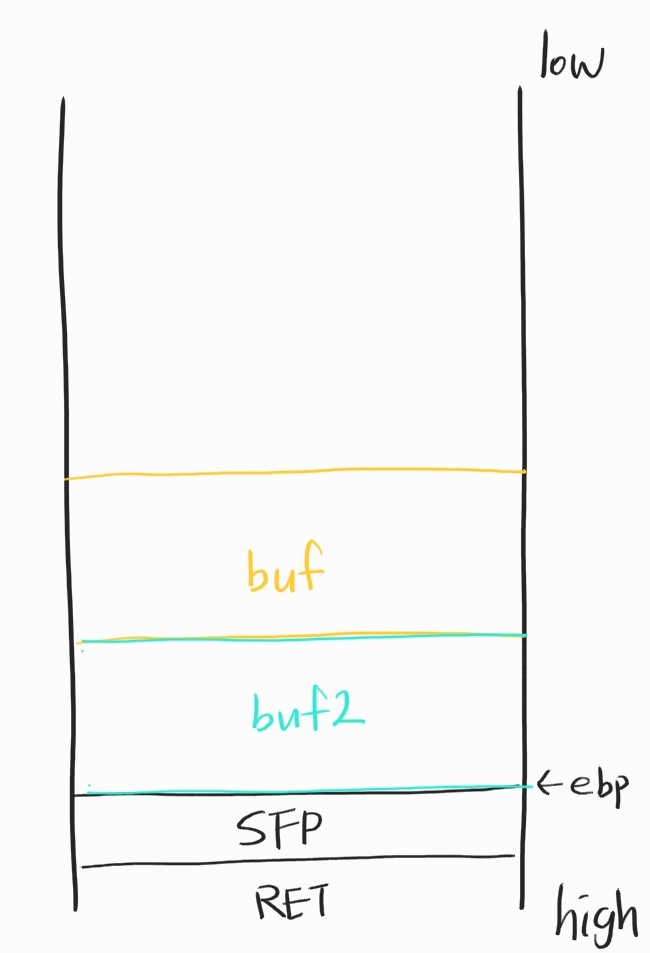 low
buf
buf2
←ebp
SFP
RET
high